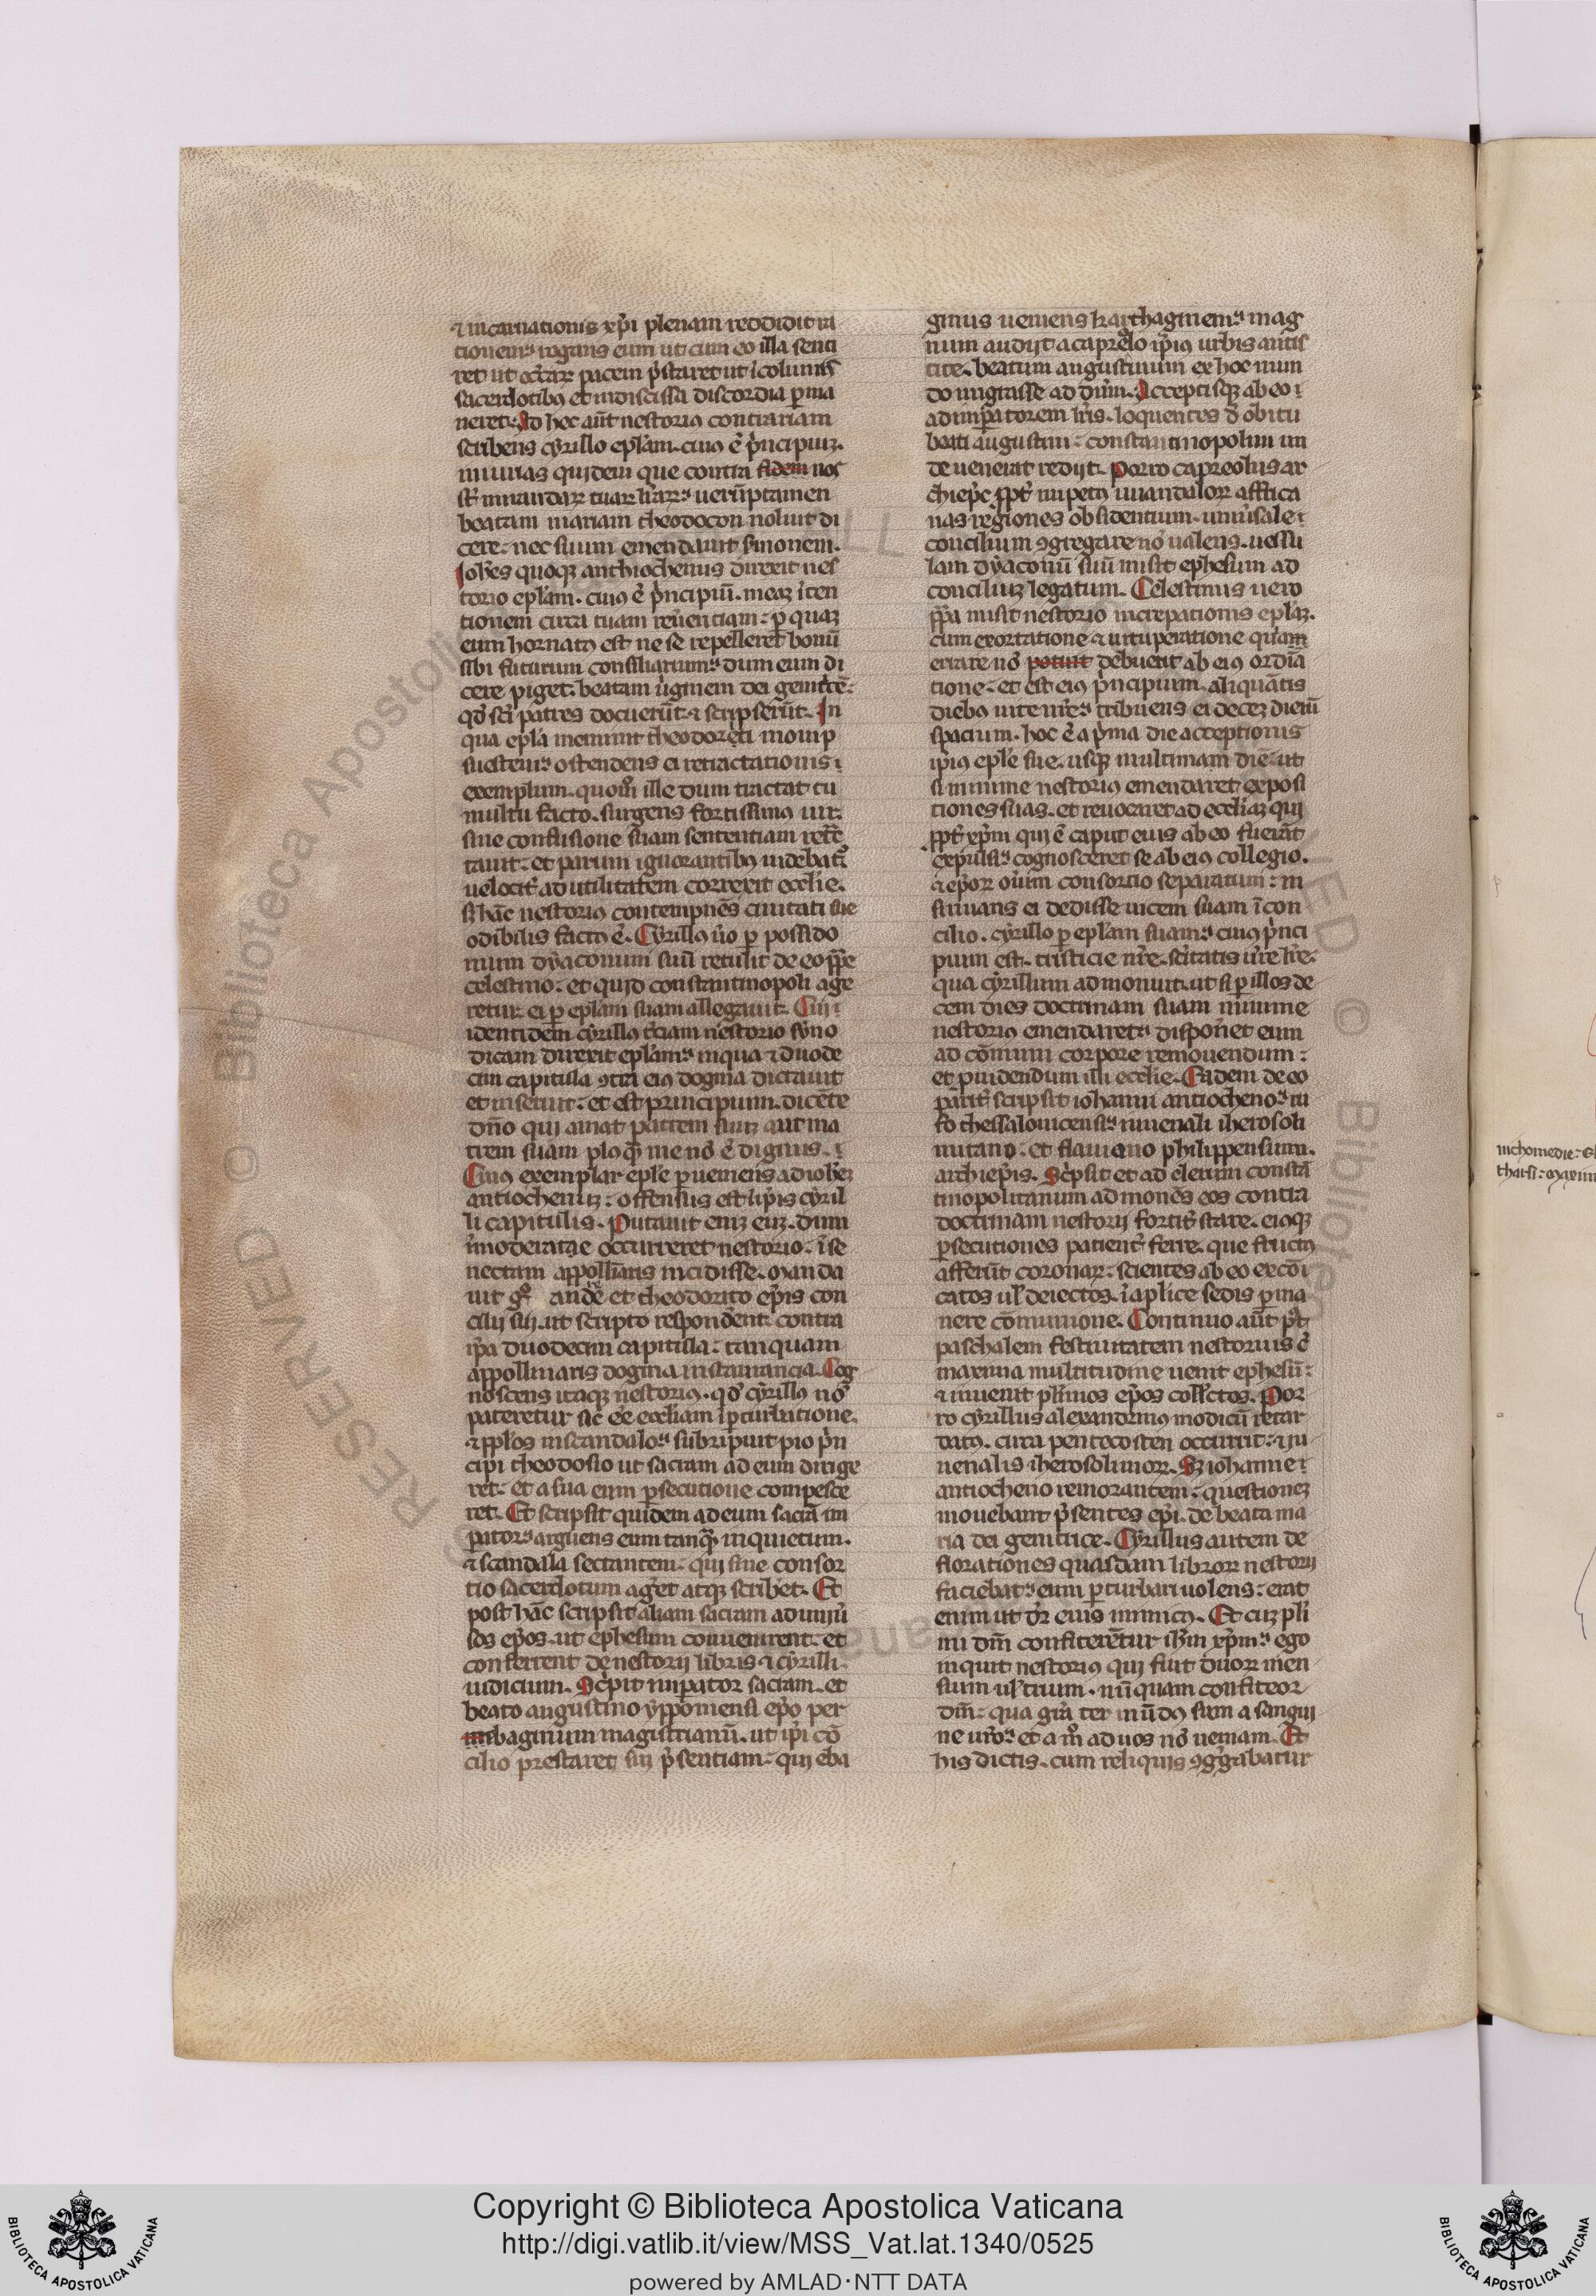 ⁊ incarnationis xp̄i plenam reddidit ra
tionem rogans eum ut cum eo illa senti
ret ut
sacerdotibꝰ et indiscissa discordia ꝑma
neret. Ad hec aūt nestoriꝰ contrariam
scribens cyrillo epl̄am. cuiꝰ ē p̄ncipiuz.
iniurias quidem que contra fidem nos
uerūptamen
beatam mariam theodocon noluit di
cere. nec suum emendauit s̄monem.
Ioh̄es quoqꝫ anthiochenus direxit nes
torio epl̄am. cuiꝰ ē p̄ncipiū. meaz īten
tionem circa tuam reuerentiam. ꝑ quaz
eum hortatꝰ est ne se repelleret bonū
sibi futurum consiliarium dum eum di
cere piget. beatam uirginem dei genitricē.
qd̄ sc̄i patres docuerūt ⁊ scripserūt. In
qua epl̄a meminit theodoreti
ostendens ei retractationis
exemplum. quom̄ ille dum tractat tu
multu facto. surgens fortissimus uir.
siue confusione suam sententiam
tauit. et parum ignorantibꝰ uidebat᷑
uelocit᷑ ad utilitatem correxit ecclie.
S; hāc nestoriꝰ contempnēs ciuitati sue
odibilis factꝰ ē. Cyrillꝰ ūo ꝑ possido
nium dyaconum suū retulit de eo pp̄e
celestino. et quid constantinopoli age
retur ei ꝑ epl̄am suam allegauit. Cui
identidem cyrillꝰ tr̄ciam nestorio syno
dicam direxit epl̄am in qua ⁊ duode
cim capitula ꝯtra eiꝰ dogma dictauit
et inseruit. et est principium. dicēte
dn̄o qui amat patrem suuz aut ma
trem suam plꝰ qͣ me nō ē dignus.
Cuiꝰ exemplar eple ꝑueniens ad ioh̄ez
antiochenuz. offensus est ip̄is cyril
li capitulis. Putauit eniz euz. dum
īmoderate occurreret nestorio. ī se
nectam appollinaris incidisse. Manda
uit gͦ andr̄e et theodorito ep̄is con
cilij sui. ut scripto responderent contra
ip̄a duodecim capitula. tanquam
appollinaris dogma instaurancia. Cog
noscens itaqꝫ nestoriꝰ. qd̄ cyrillꝰ nō
pateretur sic eē eccl̄iam ī ꝑturbatione.
⁊ ppl̄os in scandalo subripuit pio p̄n
cipi theodosio ut sacram ad eum dirige
ret. et a sua eum ꝑsecutione compesce
ret. Et scripsit quidem ad eum sacrā im
ꝑator arguens eum tanqͣ inquietum.
⁊ scandala sectantem. qui sine consor
tio sacerdotum ag̃et atqꝫ scribet. Et
post hāc scripsit aliam sacram ad uniu᷑
sos ep̄os. ut ephesum conuenirent. et
conferrent de nestorij libris ⁊ cyrilli
iudicium. Scripsit imꝑator sacram. et
beato augustino ypponiensi ep̄o per
imbaginum magistrianū. ut ip̄i cō
cilio prestaret sui p̄sentiam. qui eba
ginus ueniens karthaginem mag
num audijt a capreolo ip̄ius urbis antis
tite. beatum augustinum ex hoc mun
do migrasse ad dn̄m. Acceptisqꝫ ab eo
ad imꝑatorem lr̄is. loquentes d̄ obitu
beati augustini. constantinopolim un
de uenerat redijt. Porro capreolus ar
chiep̄c ppt᷑ impetꝰ uuandaloꝝ affrica
nas regiones obsidentium. uniu᷑sale
concilium ꝯgregare nō ualens. uessu
lam dyaconū suū misit ephesum ad
conciliuz legatum. Celestinus uero
pp̄a misit nestorio increpationis epl̄az.
cum exortatione ⁊ uituperatione quam
errare nō potuit debuerit ab eiꝰ ordīa
tione. et est eiꝰ p̄ncipium. aliquātis
diebꝰ uite nr̄e tribuens ei decez dierū
spacium. hoc ē a p̄ma die acceptionis
ip̄iꝰ eple sue. usqꝫ in ultimam diē. ut
si minime nestoriꝰ emendaret exposi
tiones suas. et reuocaret ad eccl̄iaz qui
ppt᷑ xp̄m qui ē caput eius ab eo fuerāt
expulsi cognosceret se ab eiꝰ collegio.
⁊ ep̄oꝝ oīum consortio separatum. in
sinuans ei dedisse uicem suam ī con
cilio. cyrillo ꝑ epl̄am suam cuiꝰ p̄nci
pium est. tristicie nr̄e. sc̄itatis ur̄e lr̄e.
qua cyrillum admonuit. ut si ꝑ illos de
cem dies doctrinam suam minime
nestoriꝰ emendaret disponeret eum
ad cōmuni corpore remouendum.
et ꝓuidendum illi ecclie. Eadem de eo
parit᷑ scripsit iohanni antiocheno ru
fo thessalonicensi iuuenali iherosoli
mitano. et flauiano philippensium.
archiep̄is. Scripsit et ad clerum constā
tinopolitanum admonēs eos contra
doctrinam nestorij fortit᷑ stare. eiusqꝫ
ꝑsecutiones patient᷑ ferre. que fructꝰ
afferūt coronaꝝ. scientes ab eo excōi
catos ul̄ deiectos. ī ap̄lice sedis ꝑma
nere cōmunione. Continuo aūt pꝰt
paschalem festiuitatem nestorius cū
maxima multitudine uenit ephesū.
⁊ inuenit pl̄imos ep̄os coll̄ctos. Por
ro cyrillus alexandrinꝰ modicū retar
datꝰ. circa pentecosten occurrit. ⁊ iu
uenalis iherosolimoꝝ. Sꝫ iohanne
antiocheno remorantem. questionez
mouebant p̄sentes ep̄i. de beata ma
ria dei genitrice. Cyrillus autem de
florationes quasdam libroꝝ nestorij
faciebat eum ꝑturbari uolens. erat
enim ut dr̄ eius inimicꝰ. Et cuz pl̄i
mi dm̄ confiterētur ih̄m xp̄m ego
inquit nestoriꝰ qui fuit duoꝝ men
sium ul̄ trium. nūquam confiteor
dm̄. qua gr̄a ter mūdꝰ sum a sangui
ne ur̄o et a mͦ ad uos nō ueniam. Et
his dictis. cum reliquis ꝯgͣgabatur
nichomedie.
tharsi. maxim
Copyright © Biblioteca Apostolica Vaticana
http://digi.vatlib.it/view/MSS_Vat.lat.1340/0525
powered by AMLAD·NTT DATA
BIBLIOTECA APOSTOLICA VATICANA
BIBLIOTECA APOSTOLICA VATICANA